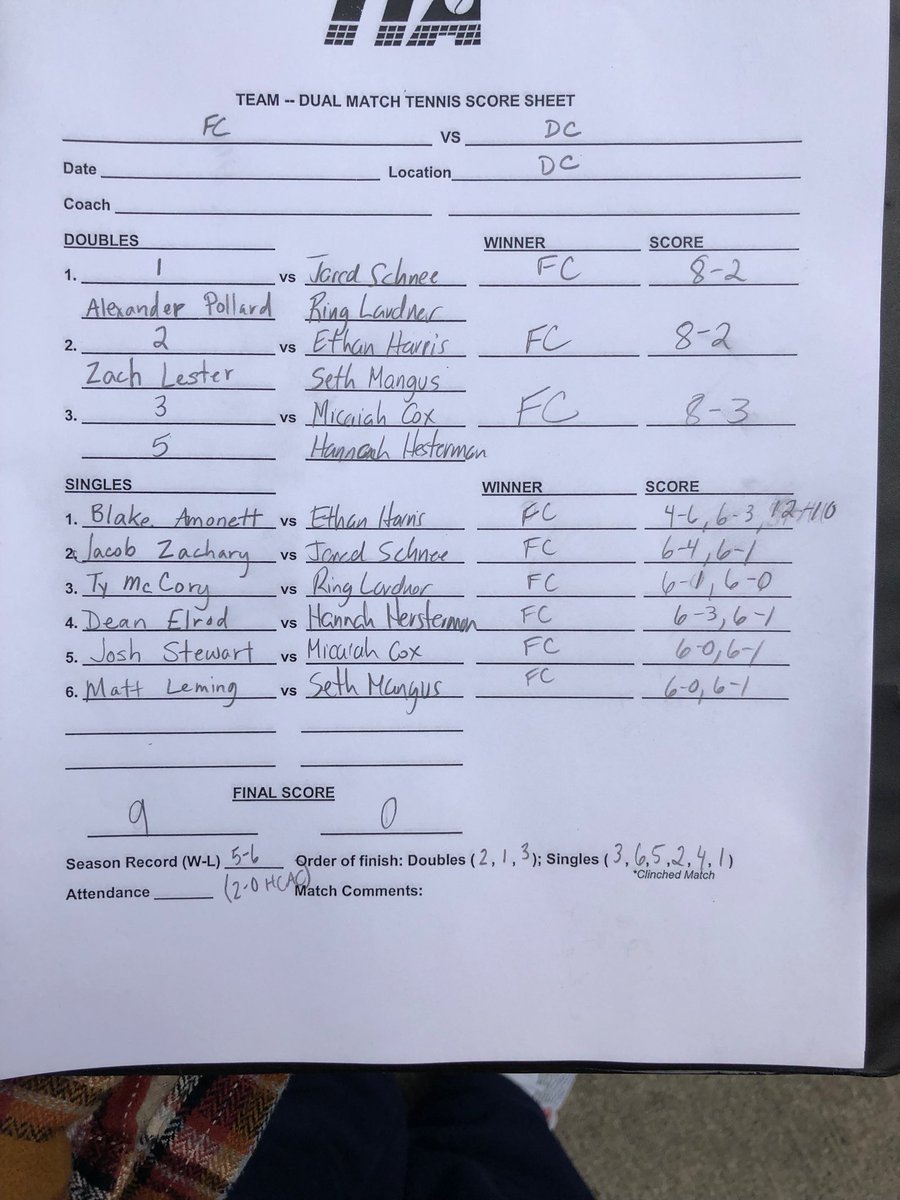 ITA
TEAM -- DUAL MATCH TENNIS SCORE SHEET
FC VS DC
Date Location DC
Coach
DOUBLES WINNER SCORE
1. 1 vs Jared Schnee FC 8-2
Alexander Pollard Ring Lardner
2. 2 vs Ethan Harris FC 8-2
Zach Lester Seth Mangus
3. 3 vs Micaiah Cox FC 8-3
5 Hannah Hesterman
SINGLES WINNER SCORE
1. Blake Amonett vs Ethan Harris FC 4-6, 6-3,
2. Jacob Zachary vs Jared Schnee FC 6-4, 6-1
3. Ty McCory vs Ring Lardner FC 6-1, 6-0
4. Dean Elrod vs Hannah Hersterman FC 6-3, 6-1
5. Josh Stewart vs Micaiah Cox FC 6-0, 6-1
6. Matt Leming vs Seth Mangus FC 6-0, 6-1
FINAL SCORE
9 0
Season Record (W-L) 5-6 Order of finish: Doubles (2, 1, 3); Singles (3, 6, 5, 2, 4, 1)
*Clinched Match
Attendance (2-0 HCAC) Match Comments: